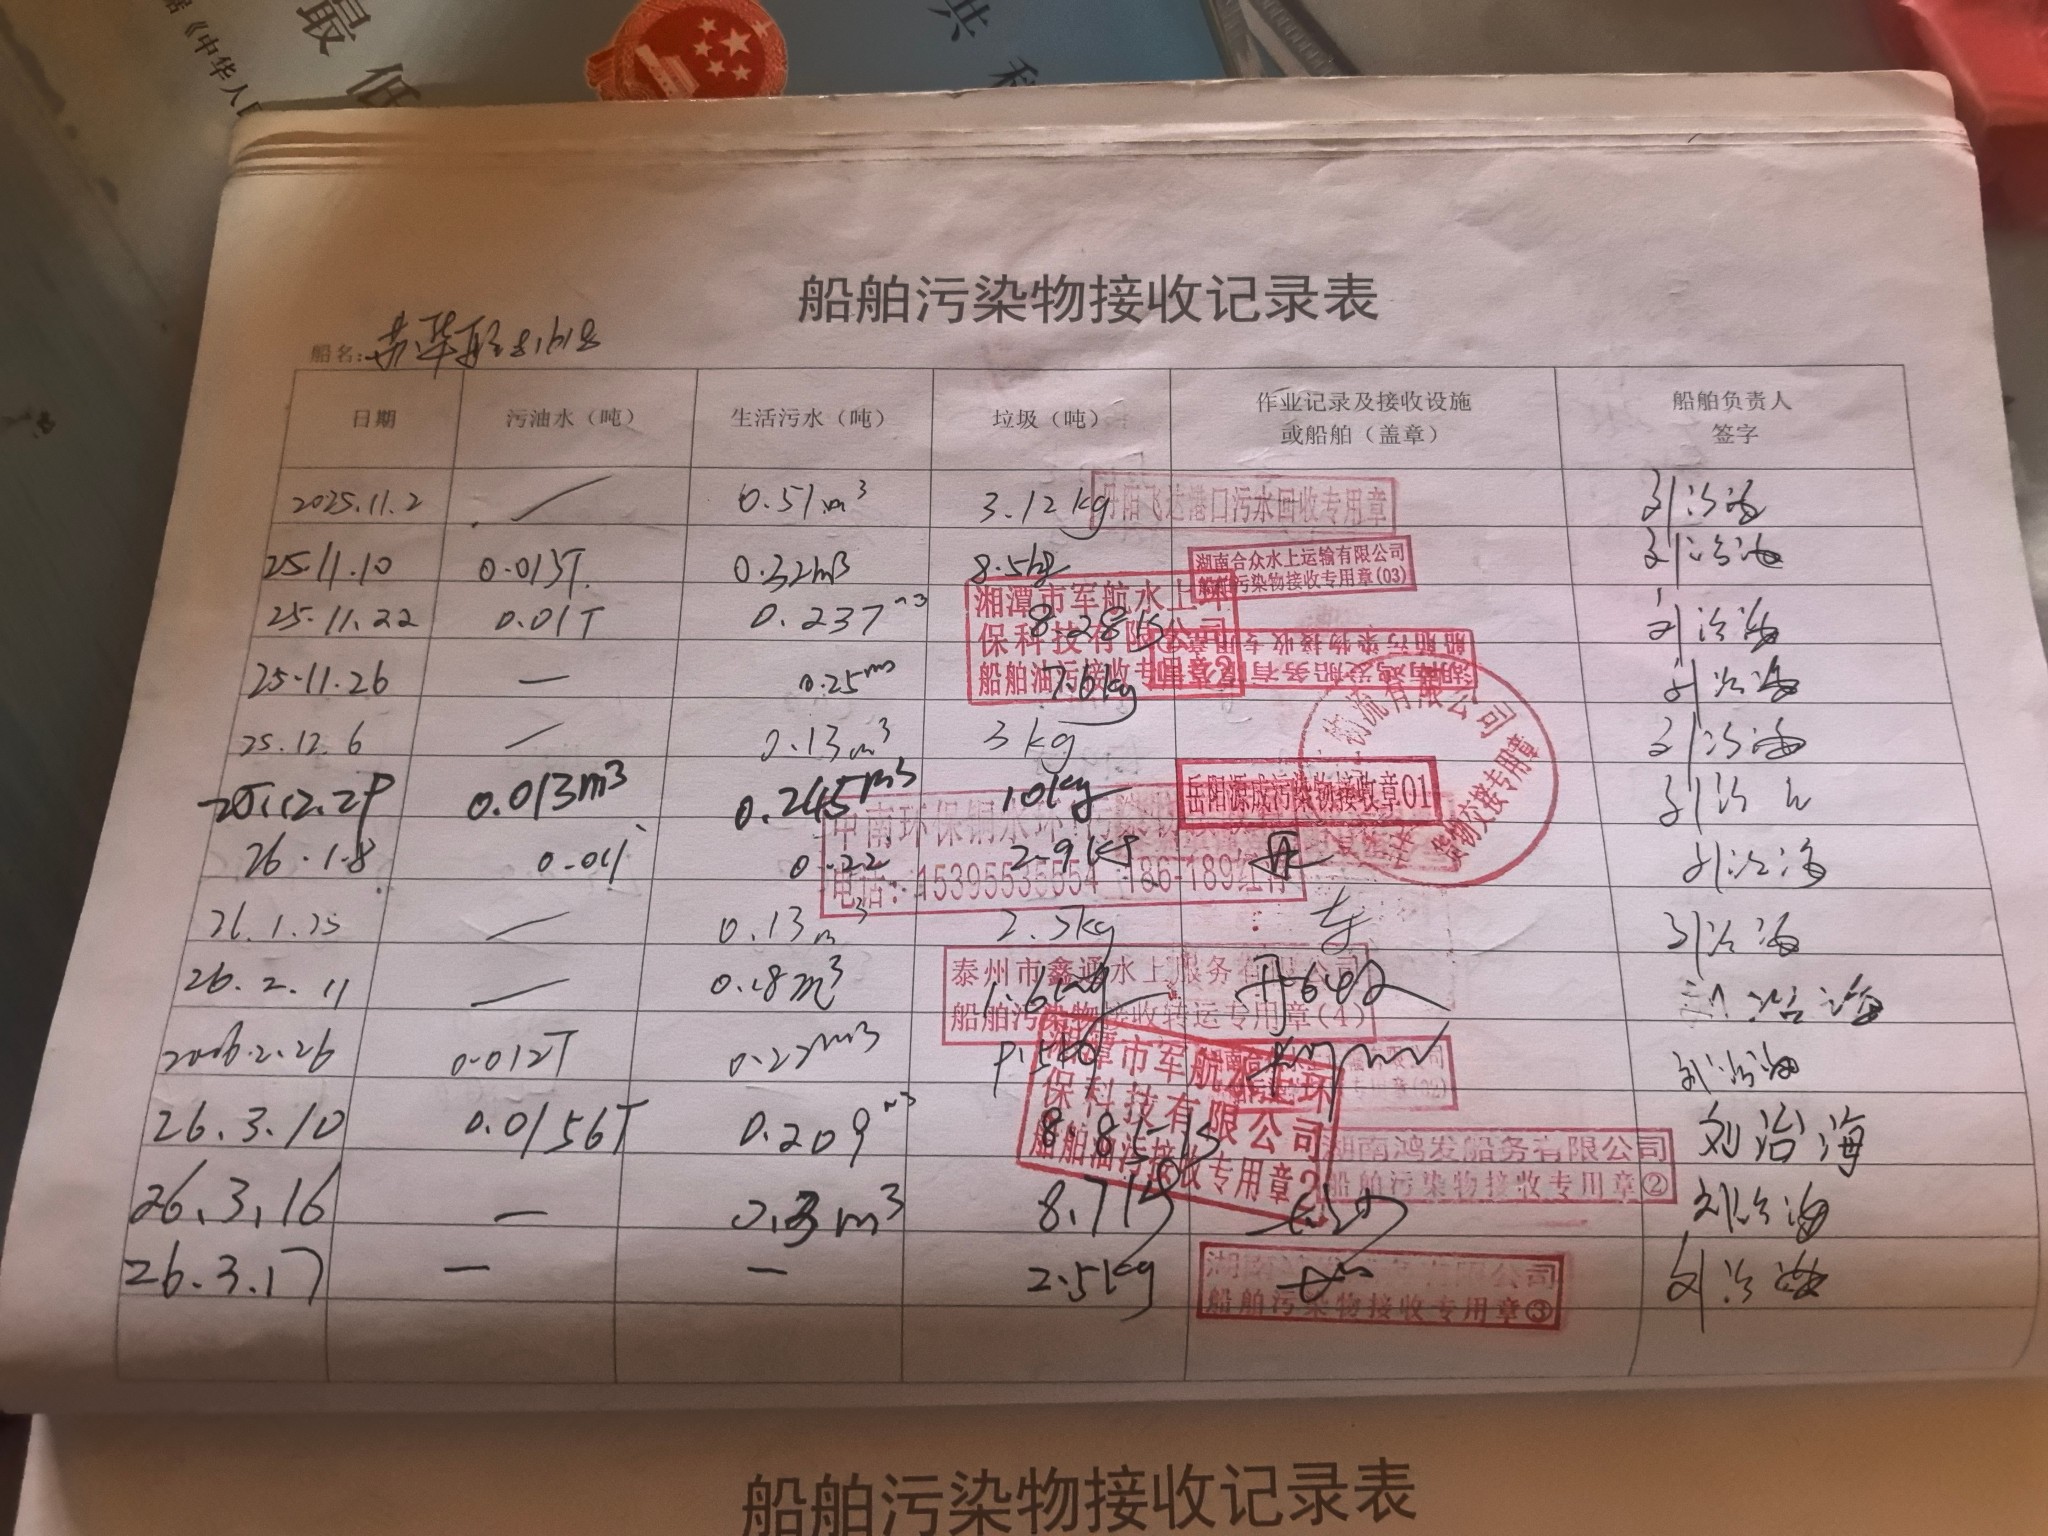 最低
据《中华人民
共和
船舶污染物接收记录表
船名:
日期 污油水(吨) 生活污水(吨) 垃圾(吨) 作业记录及接收设施或船舶(盖章) 船舶负责人签字
2025.11.2 / 0.51m³ 3.12kg 丹阳飞达港口污水回收专用章 刘治海
25.11.10 0.013T. 0.32m³ 8.5kg 湖南合众水上运输有限公司 船舶污染物接收专用章(03) 刘治海
25.11.22 0.01T 0.237m³ 8.28kg 湘潭市军航水上环保科技有限公司 船舶油污接收专用章3 刘治海
25.11.26 — 0.25m³ 7.6kg 船舶污染物接收专用章 刘治海
25.12.6 / 0.13m³ 3kg 物流有限公司 货物交接专用章 刘治海
25.12.29 0.013m³ 0.245m³ 10kg 岳阳源成污染物接收章01 刘治
26.1.8 0.01 0.22 2.9kg 中南环保铜水环 电话:15395535554 186-189红 刘治海
26.1.25 / 0.13m³ 2.5kg 刘治海
26.2.11 / 0.18m³ 1.6kg 泰州市鑫通水上服务有限公司 船舶污染物接收转运专用章(4) 刘治海
2026.2.26 0.012T 0.22m³ 9.5kg 刘治海
26.3.10 0.0156T 0.209m³ 湘潭市军航水上环保科技有限公司 船舶油污接收专用章3 刘治海
26.3.16 — 0.3m³ 8.7kg 湖南鸿发船务有限公司 船舶污染物接收专用章② 刘治海
26.3.17 — — 2.5kg 船舶污染物接收专用章③ 刘治海
船舶污染物接收记录表